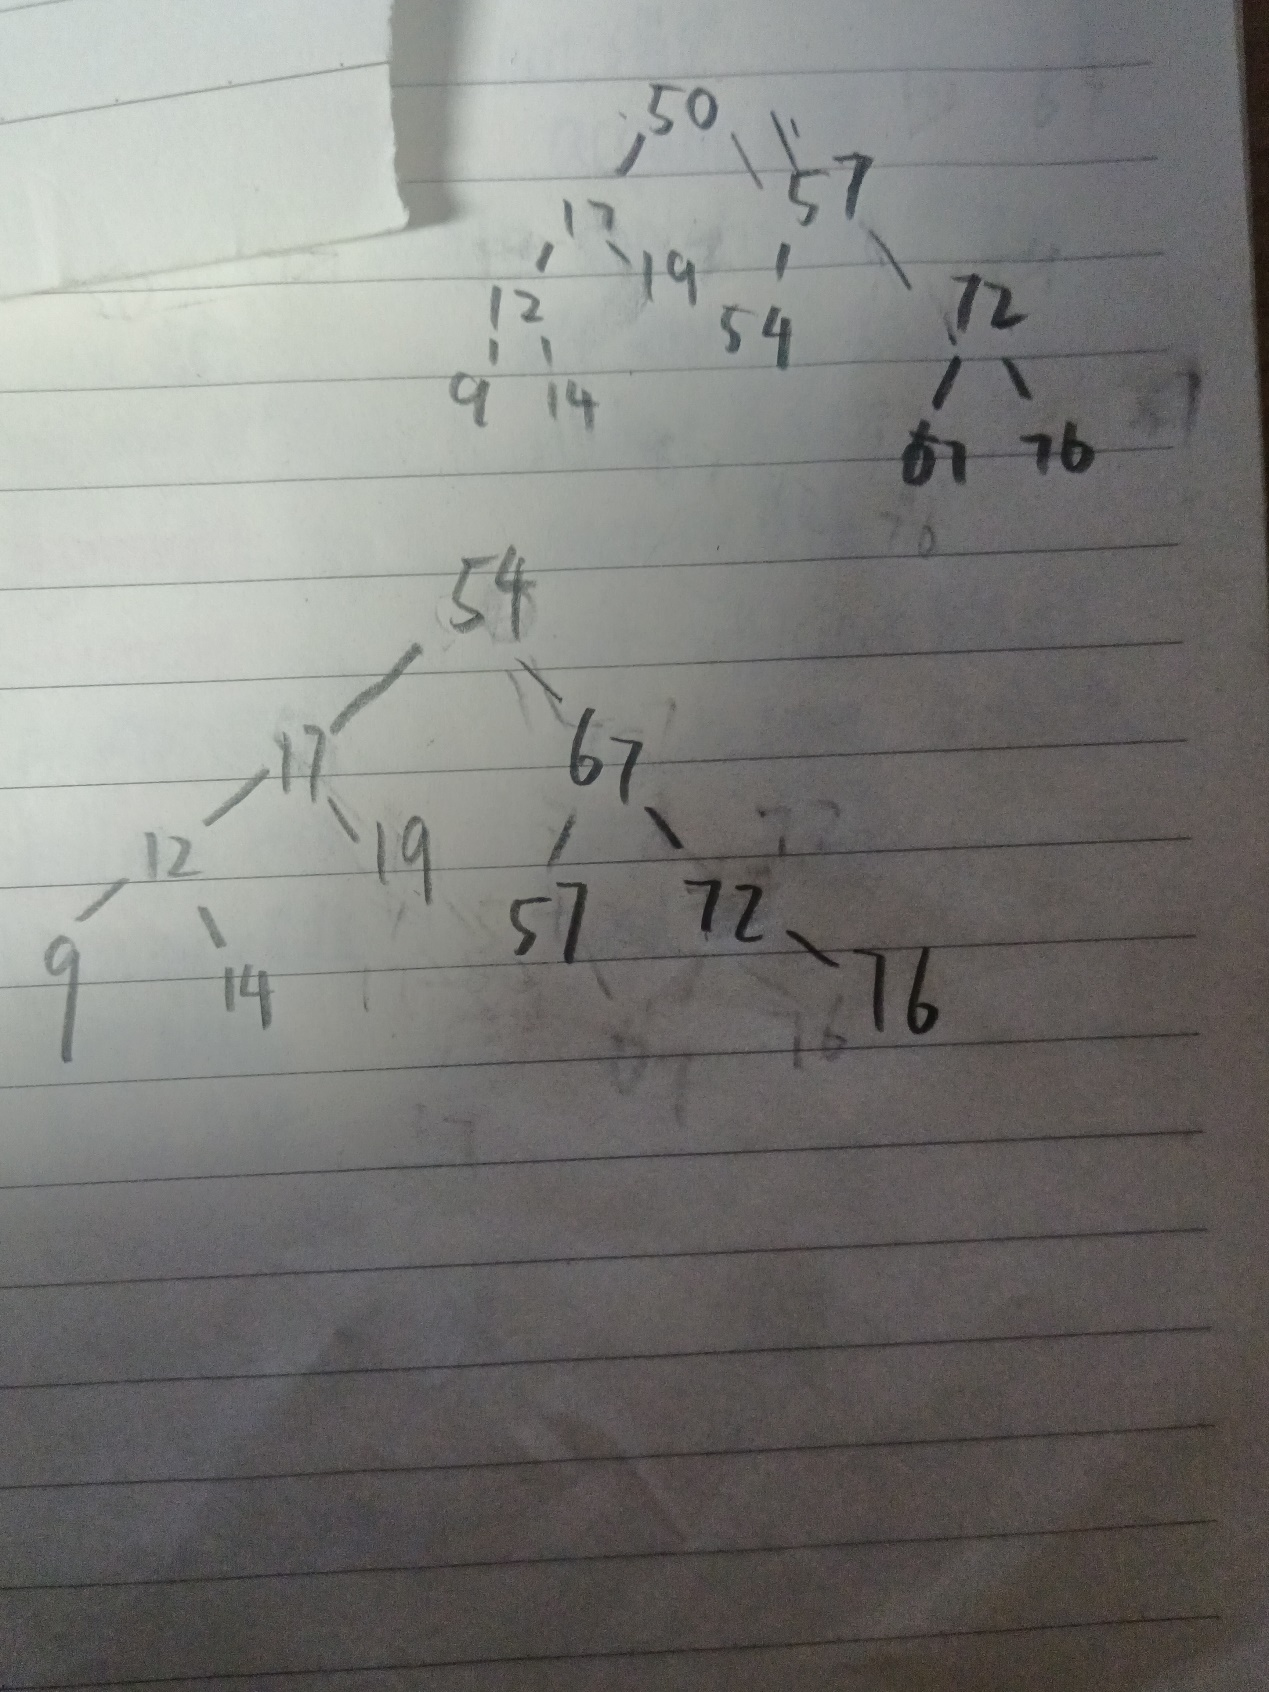 50
57
17
19
72
12
54
9 14
67 76
54
17 67
12 19
57 72
9 14 76